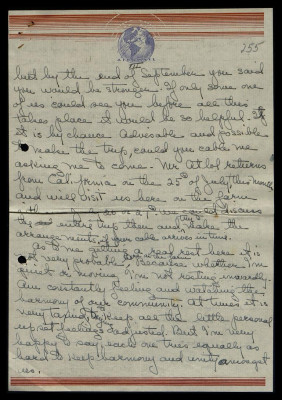 255
but by the end of September you said
you would be stronger. If only some one
of us could see you before all this
takes place it would be so helpful. If
it is by chance Advisable and possible
to make the trip, could you cable me
asking me to come. Mr Athol returns
from California on the 25th of July, this month
and will visit us here on the farm
so we could discuss
the entire trip then and make the
arrangements, if your cable arrives in time.
As to me getting rest here it is
not very probable. Because whether I'm
quiet or moving I'm not resting inwardly.
Am constantly feeling and watching the
harmony of our community. At times it is
very taxing to keep all the little personal
upset feelings adjusted. But I'm very
happy to say, each one tries equally as
hard to keep harmony and unity amongst
us.